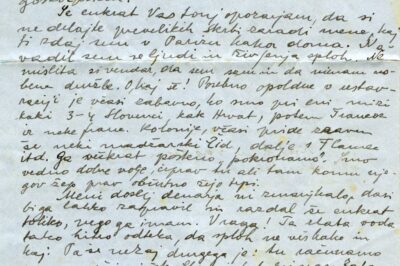 Še enkrat Vas torej opozarjam, da si
ne delajte prevelikih skrbi zaradi mene, kaj
ti zdaj sem v Parizu kakor doma. Na
vadil sem se ljudi in življenja sploh. Ne
mislita si vendar, da sem sam in da nimam no
bene družbe. O kaj še! Posebno opoldne v restav
raciji je včasi zabavno, ko smo pri eni mizi
kaki 3-4 Slovenci, kak Hrvat, potem Francoz
iz neke franc. kolonije, včasi pride zraven
še neki madžarski Žid, dalje 1 Flamec
itd. Ga večkrat po pokrohamo. Smo
vedno dobre volje, čeprav tu ali tam komu nje
gov žep prav obupno žejo trpi.
Meni doslej denarja ni zmanjkalo, dasi
bi ga lahko zapravil in razdal še enkrat
toliko, nego ga imam. Vraga! Ta zlata voda
tako hitro odteka, da sploh ne več kako in
kaj. Pa še nekaj drugega je: tu računamo